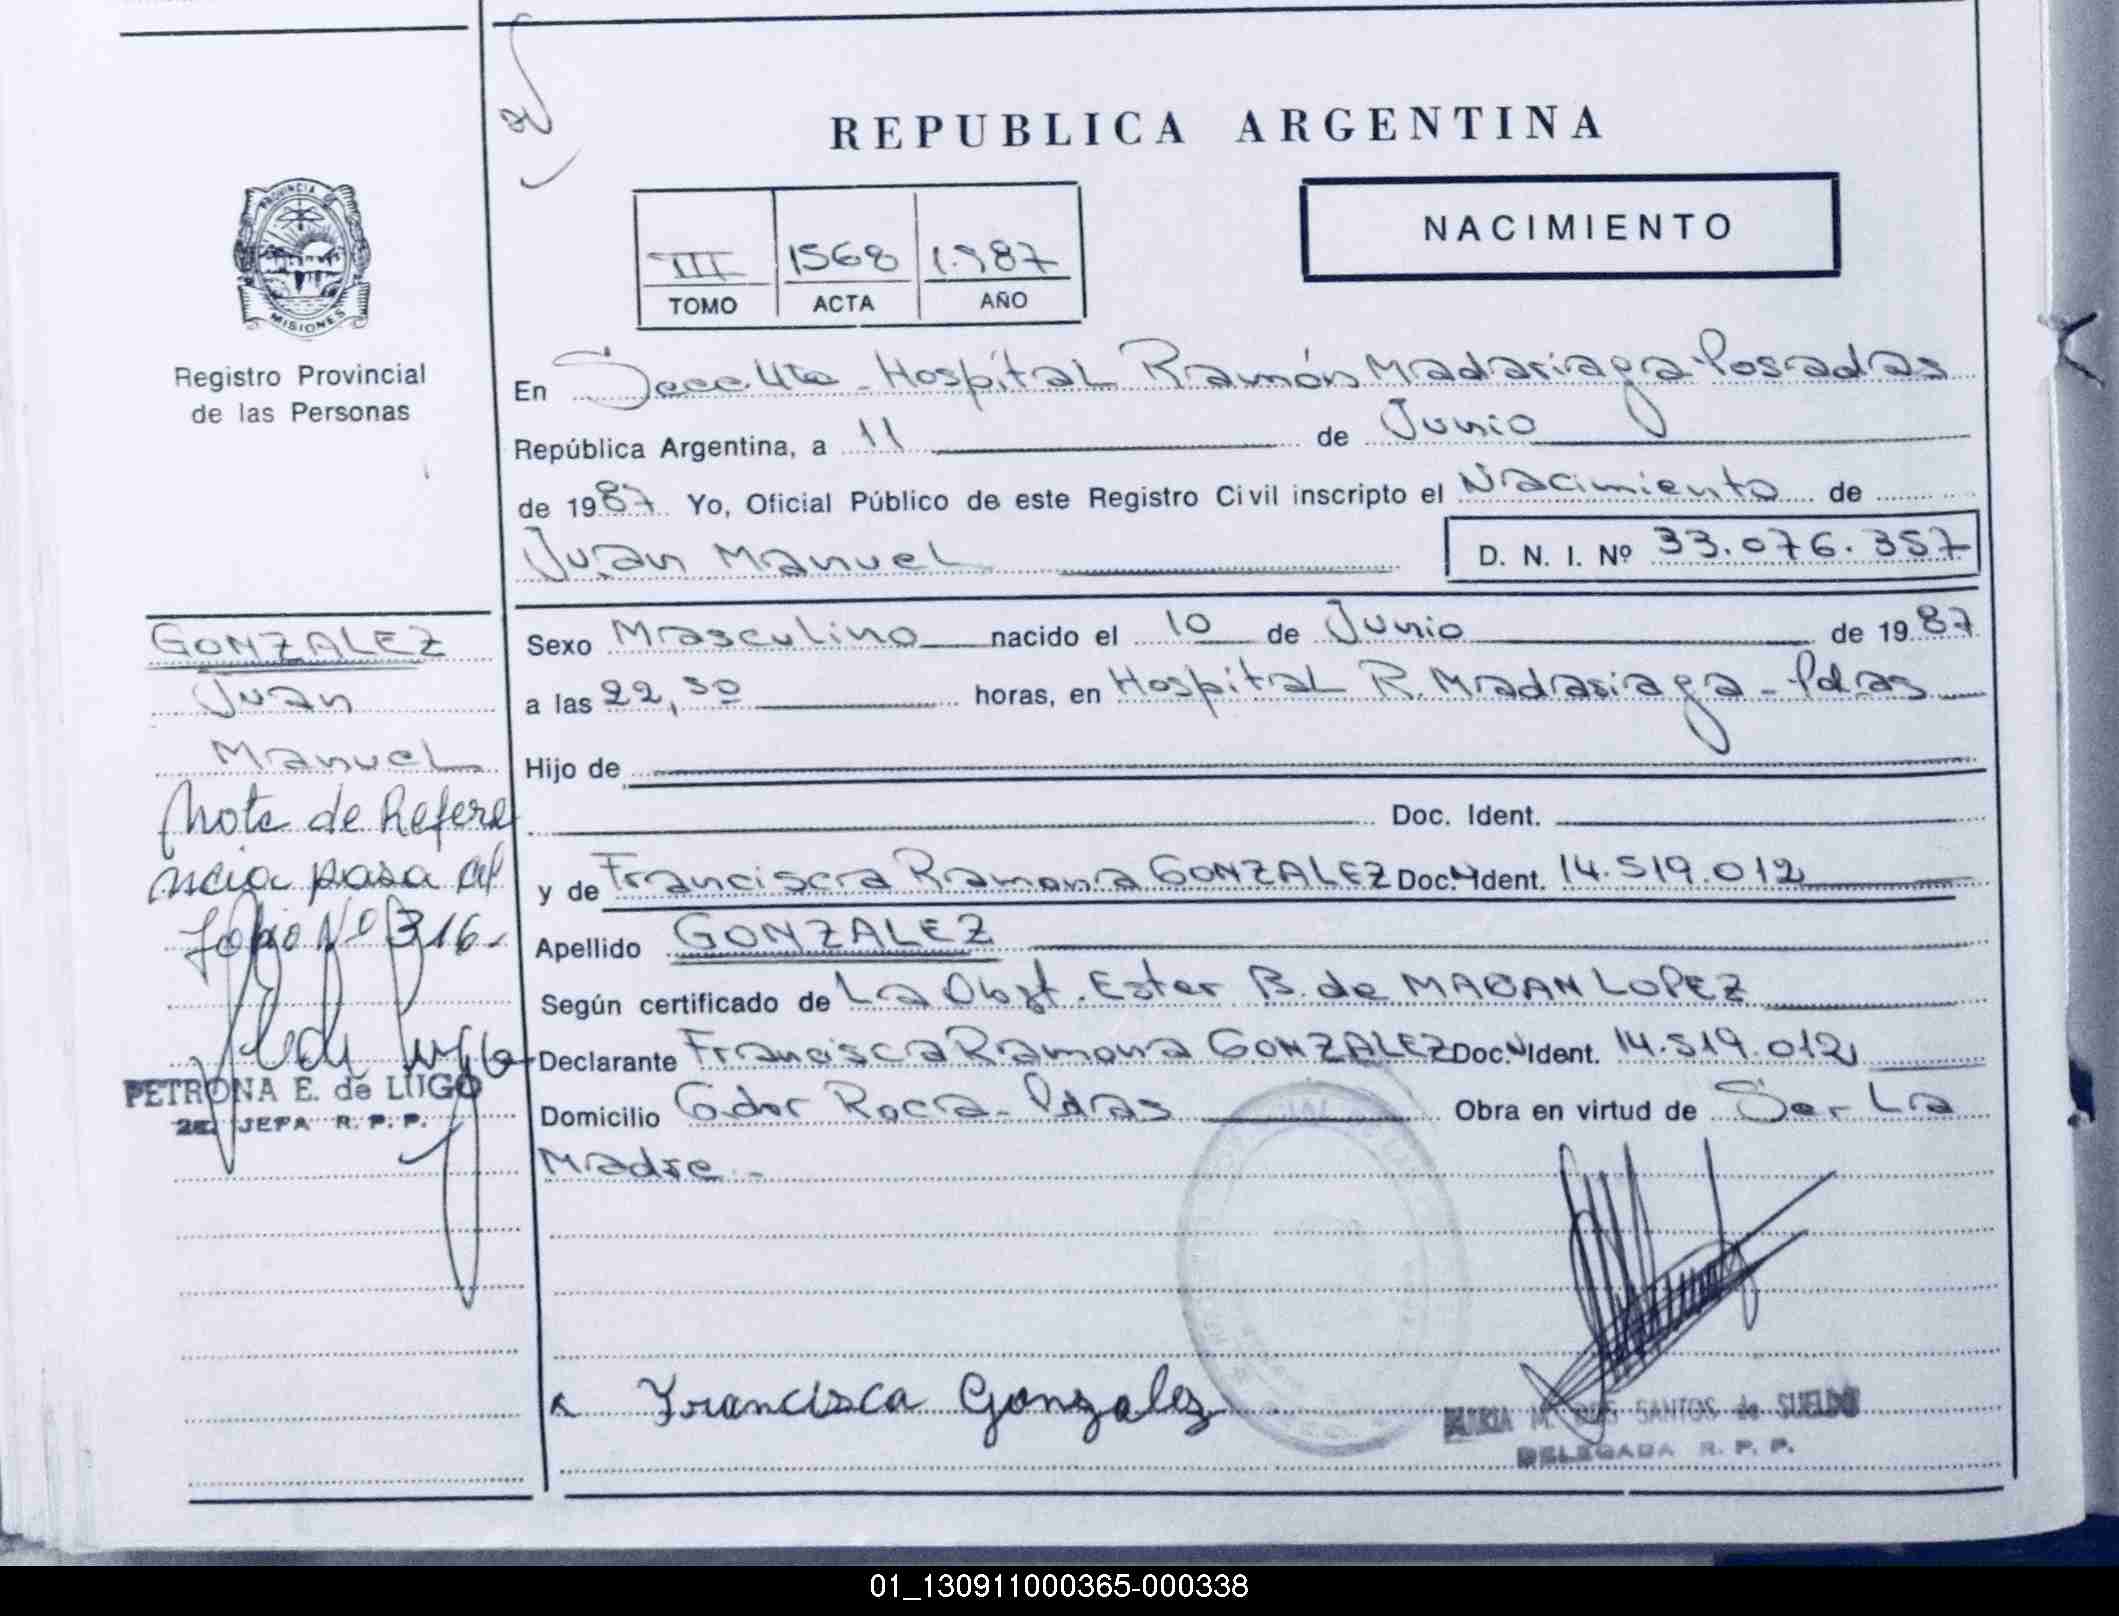 REPUBLICA ARGENTINA
NACIMIENTO
III 1568 1.987
TOMO ACTA AÑO
PROVINCIA DE
MISIONES
Registro Provincial
de las Personas
En Secc. 4ta - Hospital Ramón Madariaga Posadas
República Argentina, a 11 de Junio
de 1987 Yo, Oficial Público de este Registro Civil inscripto el Nacimiento de
Juan Manuel D. N. I. Nº 33.076.357
GONZALEZ
Juan
Manuel
Nota de Refere
ncia pasa al
folio Nº 316.-
PETRONA E. de LUGO
2a. JEFA R. P. P.
Sexo Masculino nacido el 10 de Junio de 1987
a las 22,30 horas, en Hospital R. Madariaga - Pdas
Hijo de
Doc. Ident.
y de Francisca Ramona GONZALEZ Doc. Ident. 14.519.012
Apellido GONZALEZ
Según certificado de La Obst. Ester B. de LOPEZ
Declarante Francisca Ramona GONZALEZ Doc. Ident. 14.519.012
Domicilio Gdor Roca - Pdas Obra en virtud de Ser La
Madre -
Francisca Gonzalez
MARIA M. DOS SANTOS de SUELDO
DELEGADA R. P. P.
01_130911000365-000338